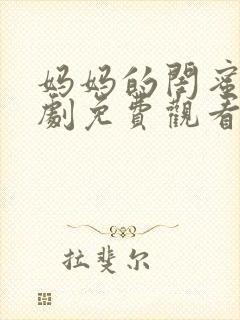 妈妈的閉蜜
劇免費觀看
拉斐尔